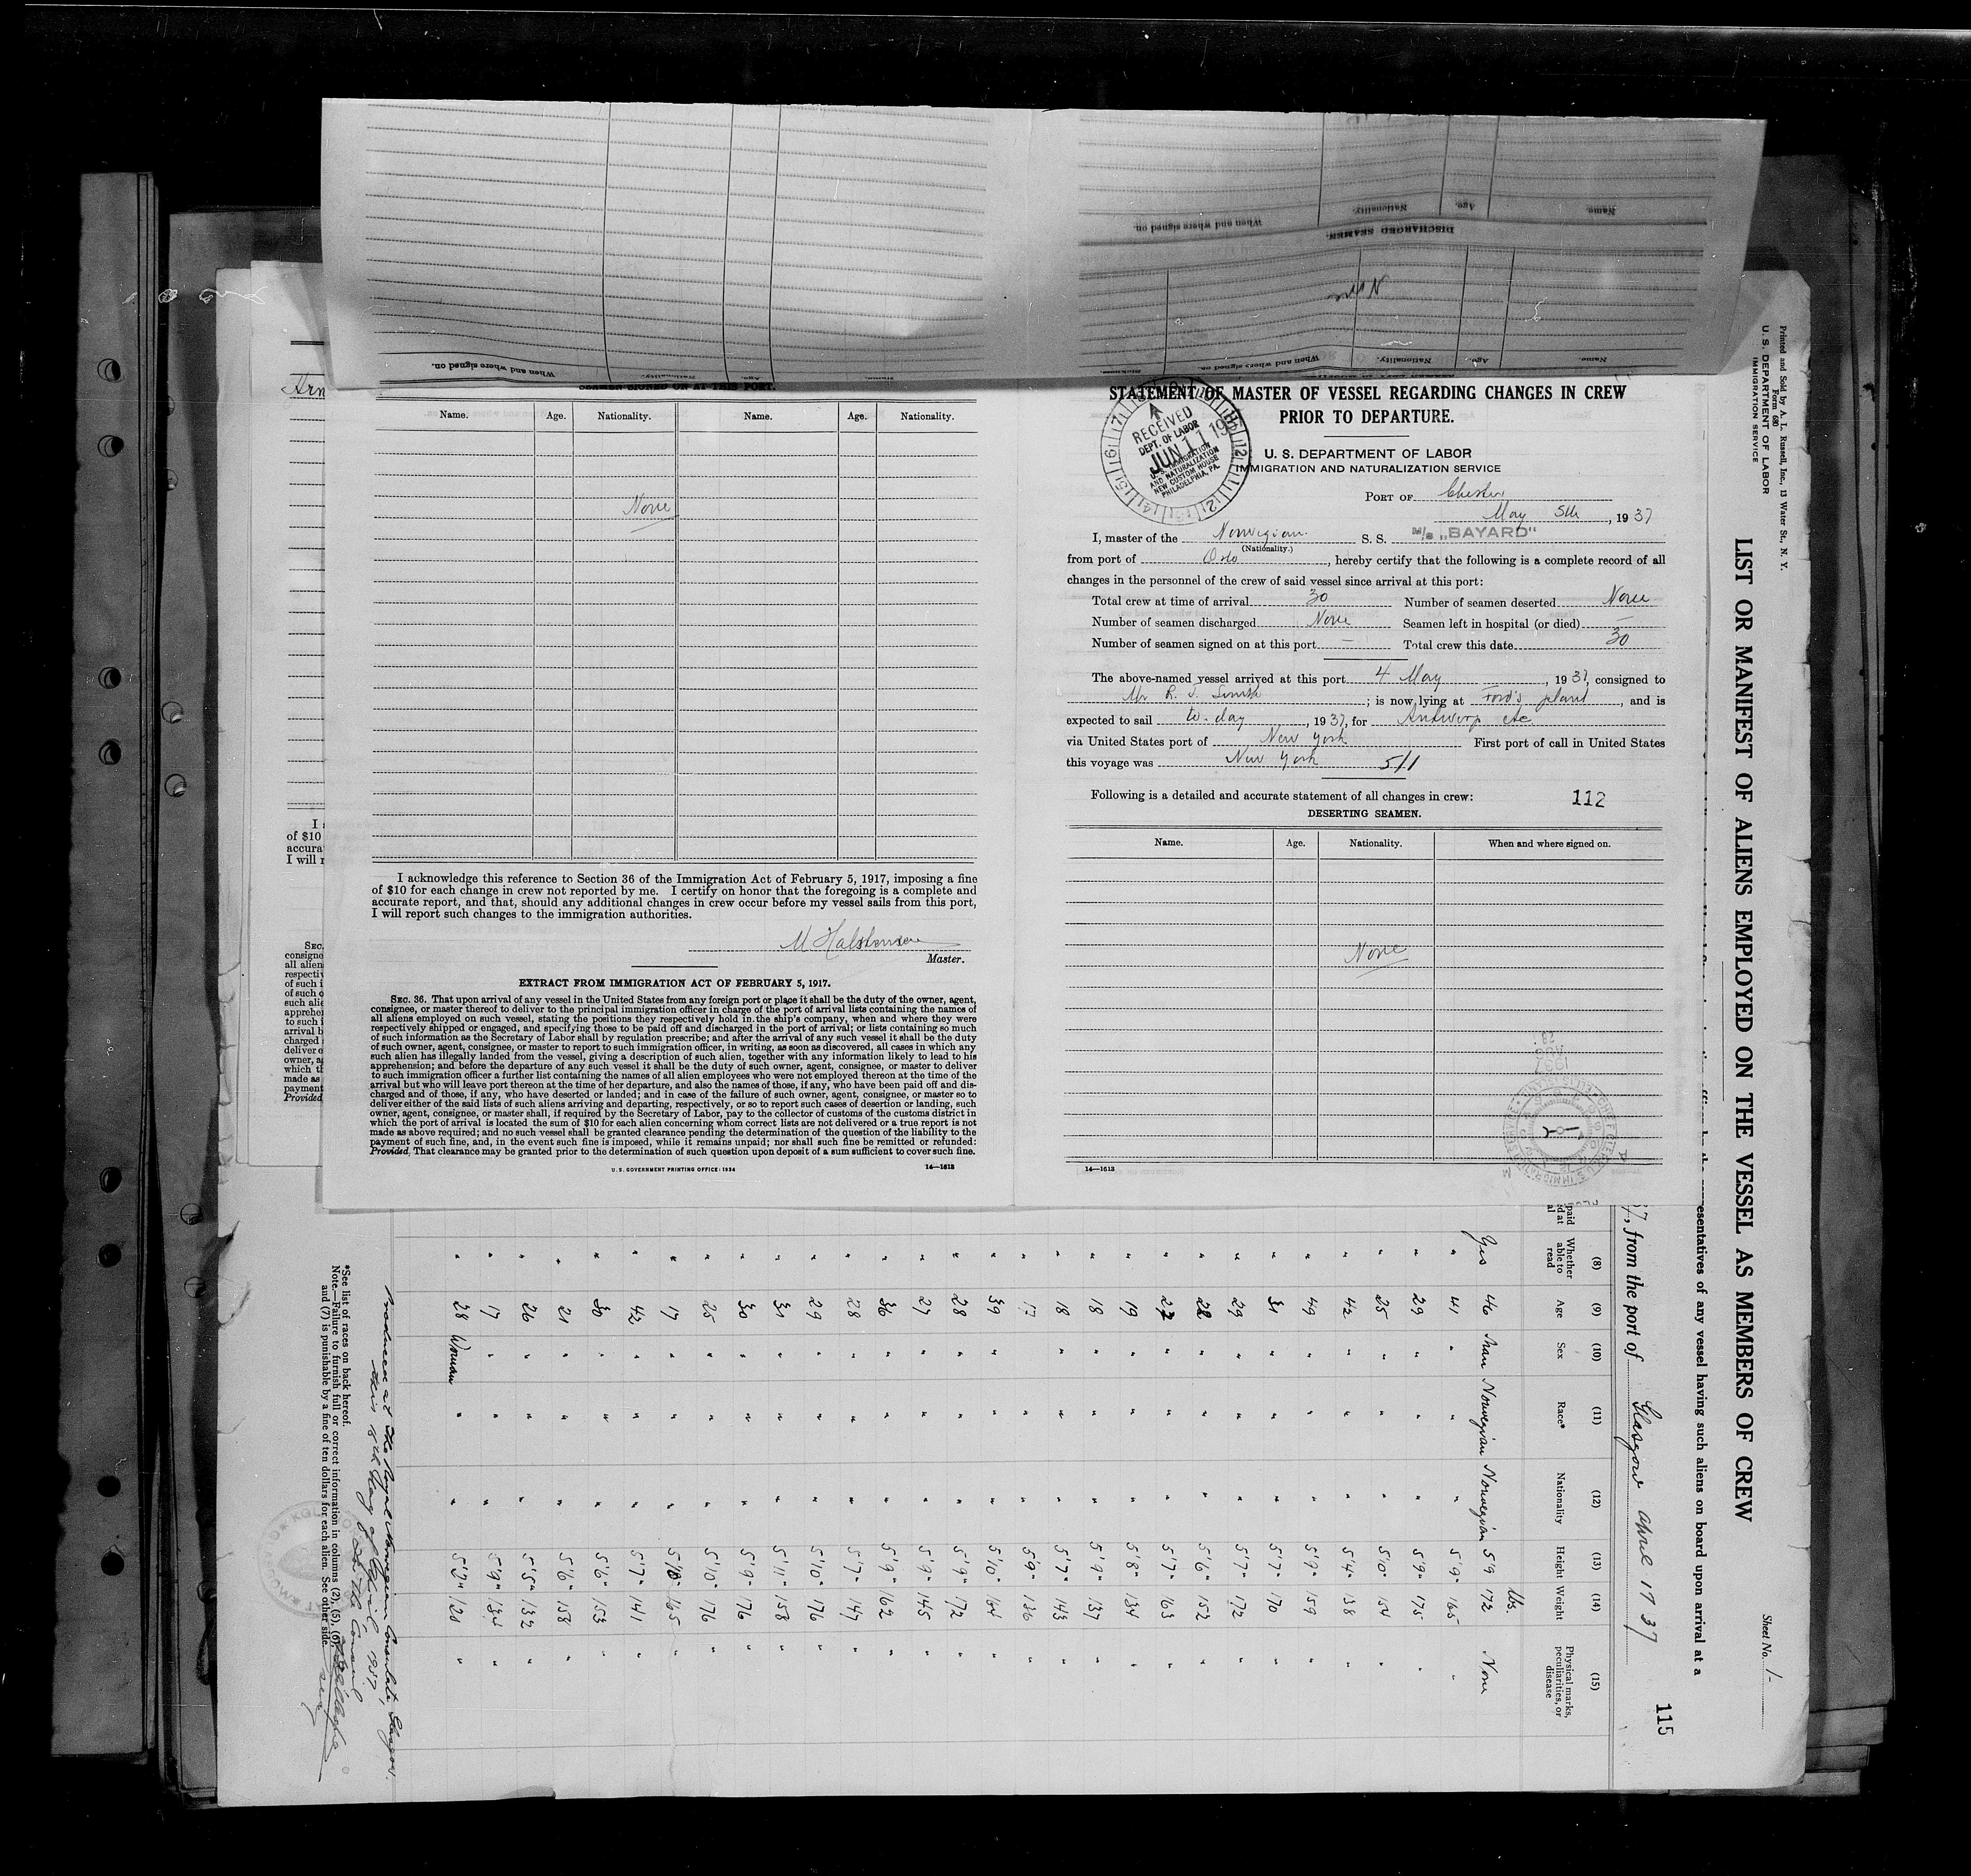 When and where signed on.
Nationality.
Age.
Name.
DISCHARGED SEAMEN.
When and where signed on.
Age.
Nationality.
Name.
When and where signed on.
Nationality.
Age.
Name.
SEAMEN SIGNED ON AT THIS PORT.
Name. Age. Nationality. Name. Age. Nationality.
None
I acknowledge this reference to Section 36 of the Immigration Act of February 5, 1917, imposing a fine
of $10 for each change in crew not reported by me. I certify on honor that the foregoing is a complete and
accurate report, and that, should any additional changes in crew occur before my vessel sails from this port,
I will report such changes to the immigration authorities.
M Halstensen
Master.
EXTRACT FROM IMMIGRATION ACT OF FEBRUARY 5, 1917.
SEC. 36. That upon arrival of any vessel in the United States from any foreign port or place it shall be the duty of the owner, agent,
consignee, or master thereof to deliver to the principal immigration officer in charge of the port of arrival lists containing the names of
all aliens employed on such vessel, stating the positions they respectively hold in the ship's company, when and where they were
respectively shipped or engaged, and specifying those to be paid off and discharged in the port of arrival; or lists containing so much
of such information as the Secretary of Labor shall by regulation prescribe; and after the arrival of any such vessel it shall be the duty
of such owner, agent, consignee, or master to report to such immigration officer, in writing, as soon as discovered, all cases in which any
such alien has illegally landed from the vessel, giving a description of such alien, together with any information likely to lead to his
apprehension; and before the departure of any such vessel it shall be the duty of such owner, agent, consignee, or master to deliver
to such immigration officer a further list containing the names of all alien employees who were not employed thereon at the time of the
arrival but who will leave port thereon at the time of her departure, and also the names of those, if any, who have been paid off and dis-
charged and of those, if any, who have deserted or landed; and in case of the failure of such owner, agent, consignee, or master so to
deliver either of the said lists of such aliens arriving and departing, respectively, or so to report such cases of desertion or landing, such
owner, agent, consignee, or master shall, if required by the Secretary of Labor, pay to the collector of customs of the customs district in
which the port of arrival is located the sum of $10 for each alien concerning whom correct lists are not delivered or a true report is not
made as above required; and no such vessel shall be granted clearance pending the determination of the question of the liability to the
payment of such fine, and, in the event such fine is imposed, while it remains unpaid; nor shall such fine be remitted or refunded:
Provided, That clearance may be granted prior to the determination of such question upon deposit of a sum sufficient to cover such fine.
U.S. GOVERNMENT PRINTING OFFICE: 1934 14—1613
STATEMENT OF MASTER OF VESSEL REGARDING CHANGES IN CREW
PRIOR TO DEPARTURE.
RECEIVED
DEPT. OF LABOR
JUN 11 193
U.S. IMMIGRATION
AND NATURALIZATION
NEW CUSTOM HOUSE
PHILADELPHIA, PA.
U. S. DEPARTMENT OF LABOR
IMMIGRATION AND NATURALIZATION SERVICE
PORT OF Chester
May 5th, 1937
I, master of the Norwegian S. S. M/s „BAYARD"
(Nationality.)
from port of Oslo, hereby certify that the following is a complete record of all
changes in the personnel of the crew of said vessel since arrival at this port:
Total crew at time of arrival 30 Number of seamen deserted None
Number of seamen discharged None Seamen left in hospital (or died) —
Number of seamen signed on at this port — Total crew this date 30
The above-named vessel arrived at this port 4 May, 1937, consigned to
Mr R. J. Smith; is now lying at Ford's plant, and is
expected to sail to-day, 1937, for Antwerp etc
via United States port of New York First port of call in United States
this voyage was New York 5/1
Following is a detailed and accurate statement of all changes in crew: 112
DESERTING SEAMEN.
Name. Age. Nationality. When and where signed on.
None
14—1613
Printed and Sold by A. L. Russell, Inc., 13 Water St., N. Y.
Form 680
U. S. DEPARTMENT OF LABOR
IMMIGRATION SERVICE
LIST OR MANIFEST OF ALIENS EMPLOYED ON THE VESSEL AS MEMBERS OF CREW
Sheet No. 1-
esentatives of any vessel having such aliens on board upon arrival at a
7, from the port of Glasgow april 17 37
115
(8) (9) (10) (11) (12) (13) (14) (15)
Whether able to read Age Sex Race* Nationality Height Weight Physical marks, peculiarities, or disease
lbs.
Yes 46 Man Norwegian Norwegian 5'9 172 None
" 41 " " " 5'9" 165 "
" 29 " " " 5'9" 175 "
" 25 " " " 5'10" 154 "
" 42 " " " 5'4" 138 "
" 49 " " " 5'9" 159 "
" 31 " " " 5'7" 170 "
" 29 " " " 5'7" 172 "
" 22 " " " 5'6" 152 "
" 27 " " " 5'7" 163 "
" 19 " " " 5'8" 134 "
" 18 " " " 5'9" 137 "
" 18 " " " 5'7" 143 "
" 17 " " " 5'9" 136 "
" 39 " " " 5'10" 164 "
" 28 " " " 5'9" 172 "
" 27 " " " 5'9" 145 "
" 36 " " " 5'9" 162 "
" 28 " " " 5'7" 147 "
" 29 " " " 5'10" 176 "
" 31 " " " 5'11" 158 "
" 30 " " " 5'9" 176 "
" 25 " " " 5'10" 176 "
" 17 " " " 5'10" 165 "
" 42 " " " 5'7" 141 "
" 30 " " " 5'6" 153 "
" 21 " " " 5'6" 158 "
" 26 " " " 5'5" 132 "
" 17 " " " 5'9" 134 "
" 28 Woman " " 5'2" 120 "
Produced at the Royal Norwegian Consulate, Glasgow.
this 17th day of April, 1937.
For the Consul
*See list of races on back hereof.
Note.—Failure to furnish full or correct information in columns (2), (5), (6),
and (7) is punishable by a fine of ten dollars for each alien. See other side.
Arn
of $10
accura
I will r
SEC.
consigne
all alien
respectiv
of such i
of such o
such alie
apprehen
to such i
arrival b
charged
deliver e
owner, ag
which th
made as
payment
Provided